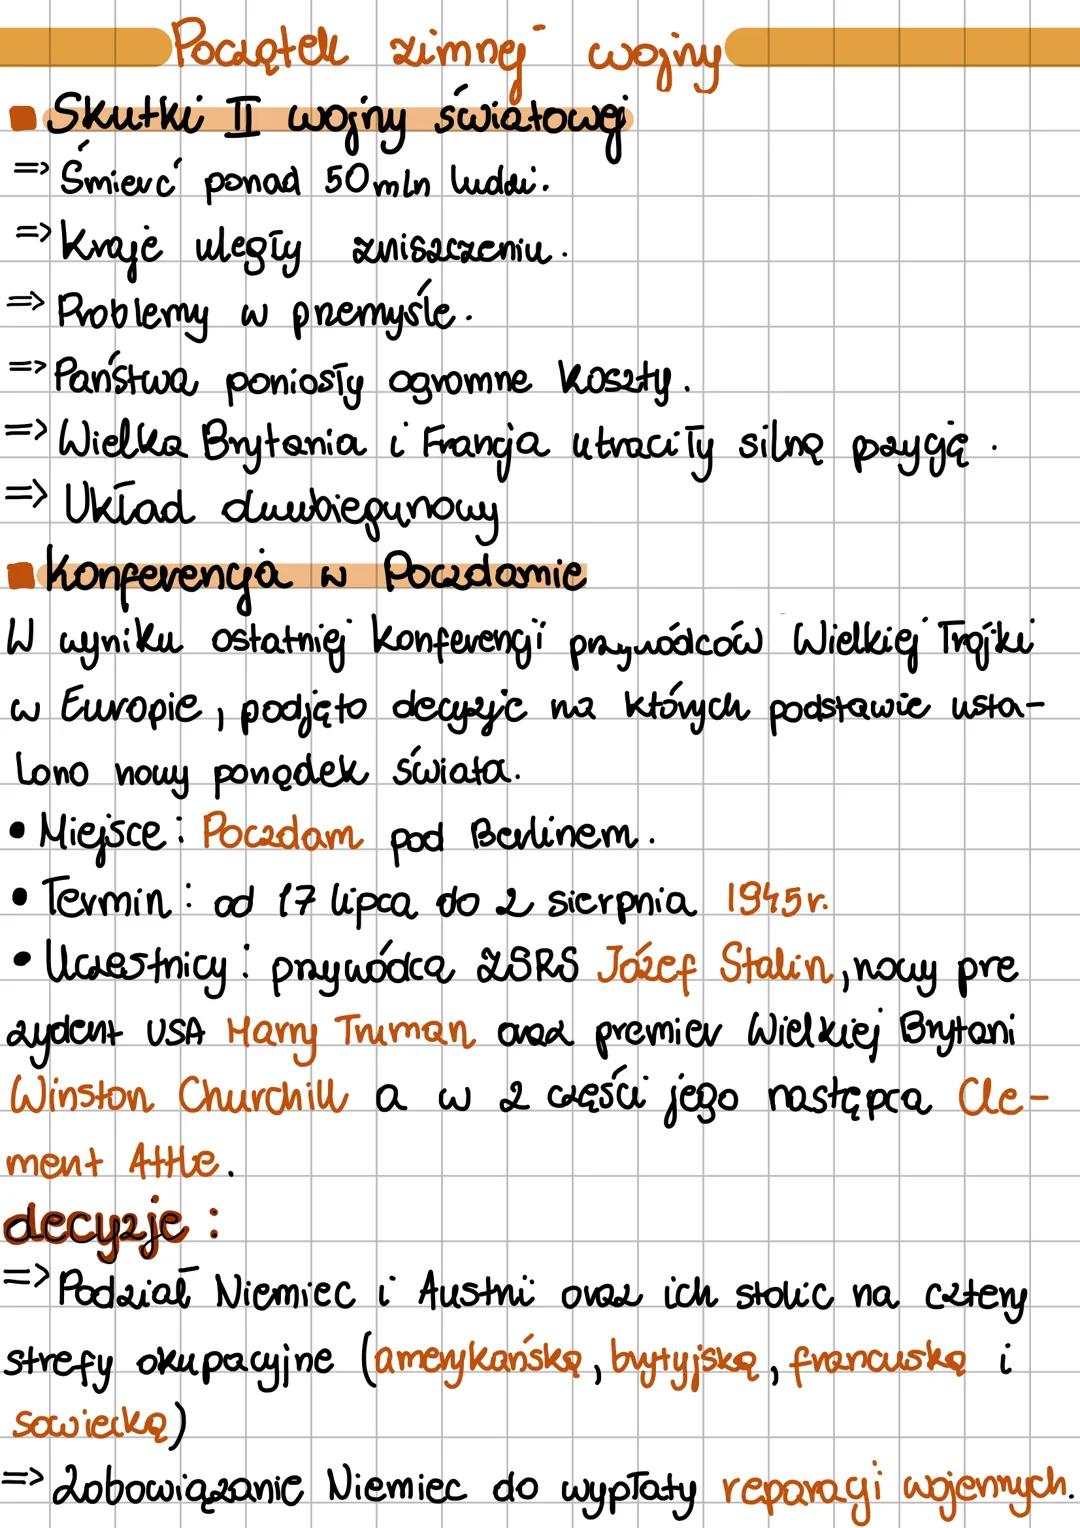 Początek zimnej wojny
Skutki II wojny światowej
=> Śmierć ponad 50 mln ludzi.
=> Kraje uległy zniszczeniu.
=> Problemy w przemyśle.
=> Państwa poniosły ogromne koszty.
=> Wielka Brytania i Francja utraciły silną pozycję.
=> Układ dwubiegunowy
Konferencja w Poczdamie
W wyniku ostatniej konferencji przywódców Wielkiej Trójki
w Europie, podjęto decyzje na których podstawie usta-
lono nowy porządek świata.
• Miejsce: Poczdam pod Berlinem.
• Termin: od 17 lipca do 2 sierpnia 1945r.
• Uczestnicy: przywódca ZSRS Józef Stalin, nowy pre
zydent USA Harry Truman oraz premier Wielkiej Brytani
Winston Churchill a w 2 części jego następca Cle-
ment Attle.
decyzje:
=> Podział Niemiec i Austrii oraz ich stolic na cztery
strefy okupacyjne (amerykańską, brytyjską, francuską i
sowiecką)
=> Zobowiązanie Niemiec do wypłaty reparacji wojennych.